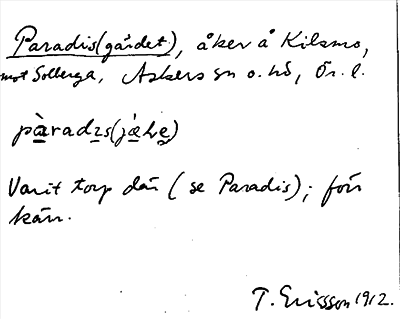 Paradis(gärdet), åker å Kilsmo,
mot Solberga, Askers sn o. hd, Ör. l.
pàradıs(jæ̀ḷe)
Varit torp där (se Paradis); förr
kärr.
T. Ericsson 1912.